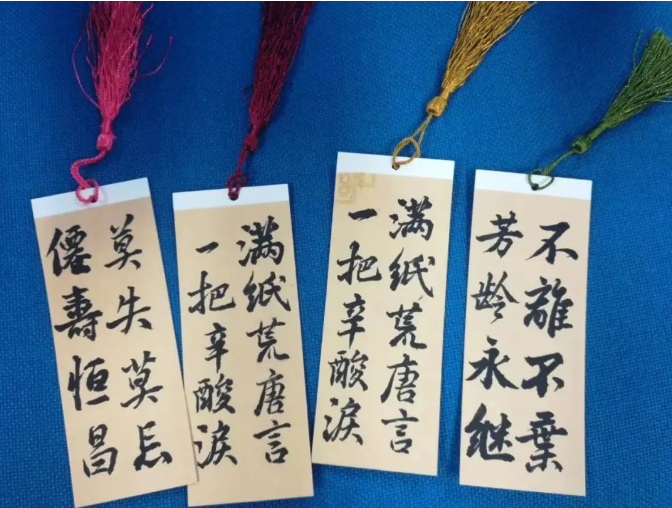 莫失莫忘
僊壽恒昌
滿紙荒唐言
一把辛酸淚
滿紙荒唐言
一把辛酸淚
不離不棄
芳龄永继